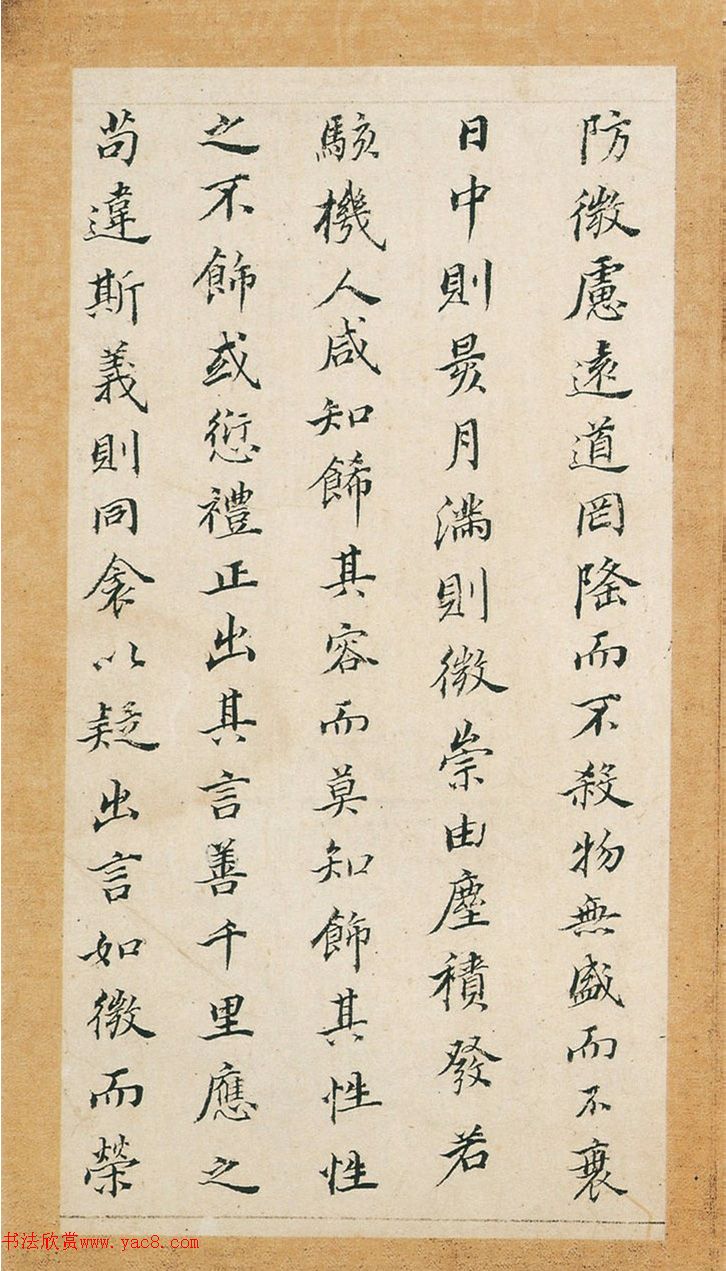 防微慮遠道罔隆而不殺物無盛而不衰
日中則昃月滿則微崇由塵積發若
駭機人咸知餙其容而莫知飾其性性
之不飾或愆禮正出其言善千里應之
苟違斯義則同衾以疑出言如微而榮
书法欣赏www.yac8.com